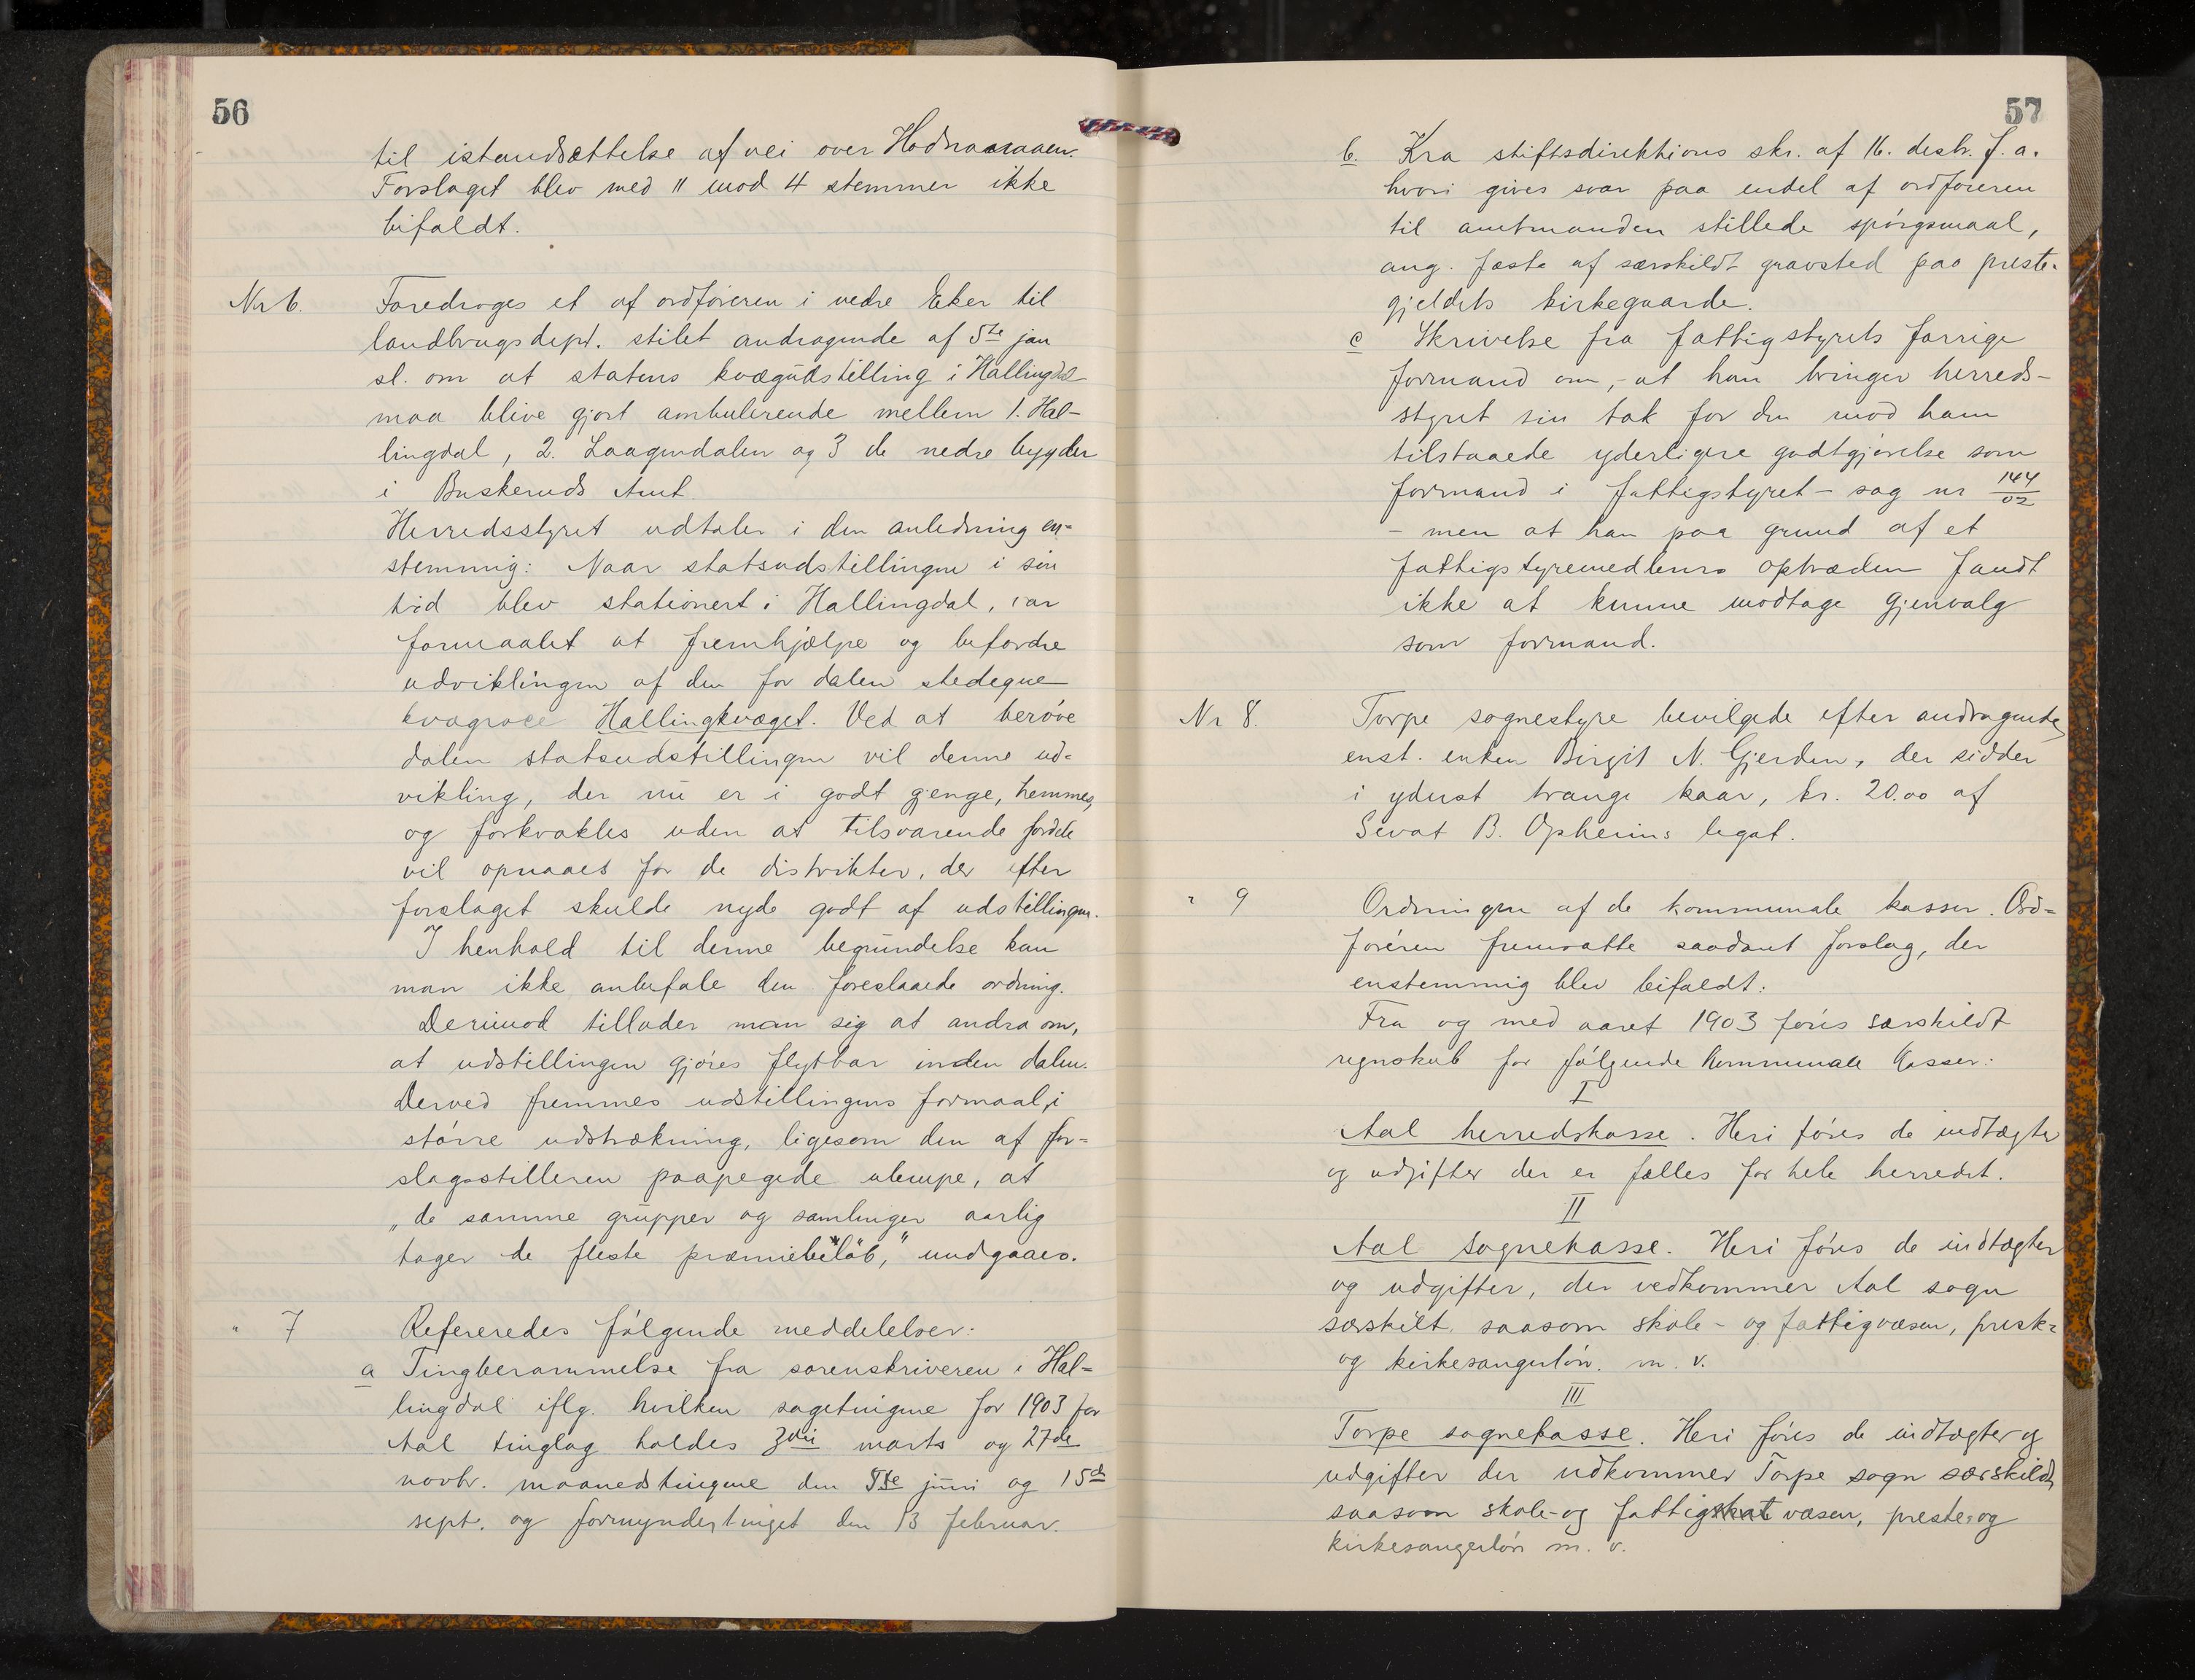 56
til istandsættelse af vei over
Forslaget blev med 11 mod 4 stemmer ikke
bifaldt.
Nr 6. Foredroges et af ordføreren i nedre Eker til
landbrugsdept. stilet andragende af 5te jan
sl. om at statens kvægudstilling i Hallingdal
maa blive gjort ambulerende mellem 1. Hal-
lingdal, 2. Laagendalen og 3 de nedre bygder
i Buskeruds Amt
Herredsstyret udtaler i den anledning en-
stemmig: Naar statsudstillingen i sin
tid blev stationert i Hallingdal, var
formaalet at fremhjælpe og befordre
udviklingen af den for dalen stedegne
kvægrace Hallingkvæget. Ved at berøve
dalen statsudstillingen vil denne ud-
vikling, der nu er i godt gjenge, hemmes,
og forkvakles uden at tilsvarende fordele
vil opnaaes for de distrikter, der efter
forslaget skulde nyde godt af udstillingen.
I henhold til denne begrundelse kan
man ikke anbefale den foreslaaede ordning.
Derimod tillader man sig at andra om,
at udstillingen gjøres flytbar inden dalen.
Derved fremmes udstillingens formaal i
større udstrækning, ligesom den af for-
slagsstilleren paapegede ulempe, at
„de samme grupper og samlinger aarlig
tager de fleste præmiebeløb," undgaaes.
" 7 Refereredes følgende meddelelser:
a Tingberammelse fra sorenskriveren i Hal-
lingdal iflg. hvilken sagetingene for 1903 for
Aal tinglag holdes 3die marts og 27de
novbr. maanedstingene den 5te juni og 15de
sept. og formyndertinget den 13 februar.
57
b. Kra stiftsdirektions skr. af 16. desbr. f. a.
hvori gives svar paa endel af ordføreren
til amtmanden stillede spørgsmaal,
ang. fæste af særskildt gravsted paa preste-
gjeldets kirkegaarde.
c Skrivelse fra fattigstyrets forrige
formand om, at han bringer herreds-
styret sin tak for den mod ham
tilstaaede yderligere godtgjørelse som
formand i fattigstyret - sag nr 144/02
- men at han paa grund af et
fattigstyremedlems optræden fandt
ikke at kunne modtage gjenvalg
som formand.
Nr 8. Torpe sognestyre bevilgede efter andragende
enst. enken Birgit N. Gjerden, der sidder
i yderst trange kaar, kr. 20.00 af
Sevat B. Opheims legat.
" 9 Ordningen af de kommunale kasser. Ord-
føreren fremsatte saadant forslag, der
enstemmig blev bifaldt:
Fra og med aaret 1903 føres særskildt
regnskab for følgende kommunale kasser:
I
Aal herredskasse. Heri føres de indtægter
og udgifter der er fælles for hele herredet.
II
Aal sognekasse. Heri føres de indtægter
og udgifter, der vedkommer Aal sogn
særskilt saasom skole- og fattigvæsen, prest-
og kirkesangerløn. m. v.
III
Torpe sognekasse. Heri føres de indtægter og
udgifter der vedkommer Torpe sogn særskildt,
saasom skole- og fattigskat væsen, preste- og
kirkesangerløn m. v.